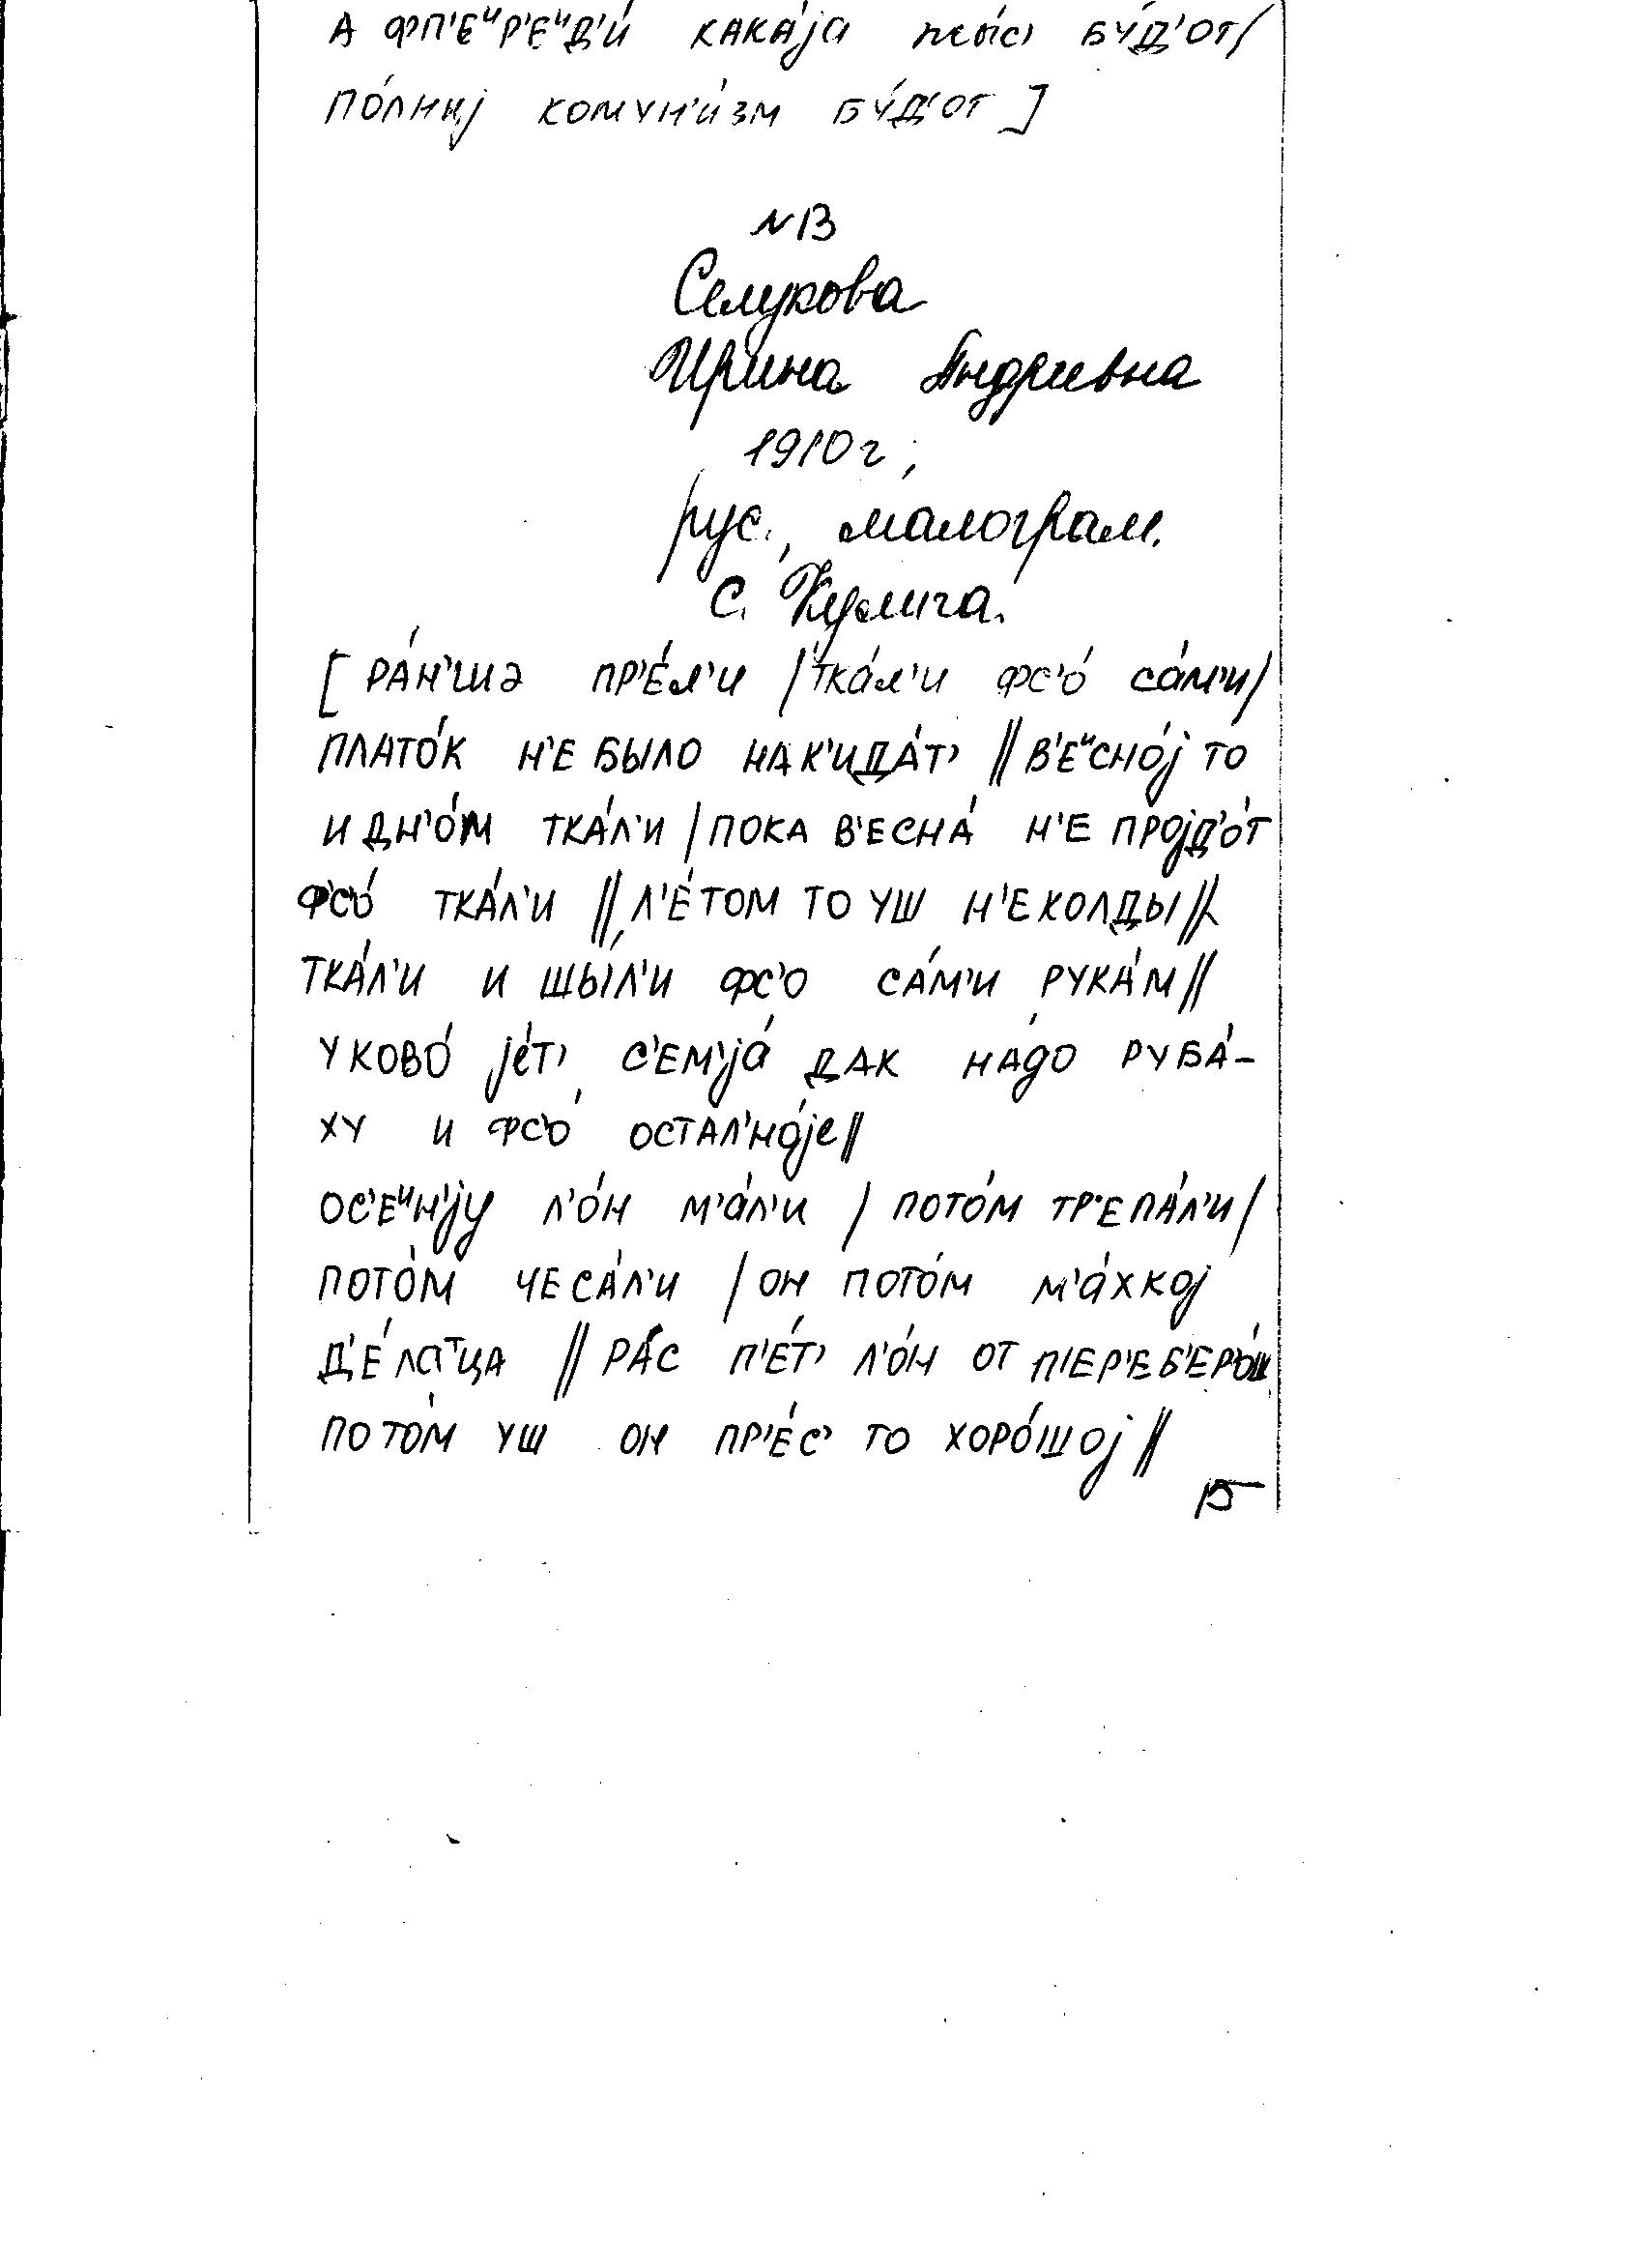 А ФП'Е́ᴻР'Е́ᴻД'И́ КАКА́jА жы́с' БУ́Д'ОТ/
ПО́ЛНИj КОМУН'И́ЗМ БУ́Д'ОТ]
N 13
Селукова
Ирина Андриевна
1910 г,
рус., малограм.
с. Кулига.
[РА́Н'ШЭ ПР'Е́Л'И /ТКА́Л'И ФС'О́ СА́М'И/
ПЛАТО́К Н'Е БЫЛО НАК'ИДА́Т' // В'ЕᴻСНО́j ТО
И ДН'О́М ТКА́Л'И / ПОКА В'ЕСНА́ Н'Е ПРОjД'О́Т
ФС'О́ ТКА́Л'И // Л'Е́ТОМ ТО УШ Н'ЕКОЛДЫ //
ТКА́Л'И И ШЫ́Л'И ФС'О СА́М'И РУКА́М //
У КОВО́ jе́Т' С'ЕМ'jА́ ДАК НА́ДО РУБА́-
ХУ И ФС'О́ ОСТАЛ'НО́jе //
ОС'ЕᴻН'jУ Л'О́Н М'А́Л'И / ПОТО́М ТР'ЕПА́Л'И/
ПОТО́М ЧЕСА́Л'И / ОН ПОТО́М М'А́ХКОj
Д'Е́ЛАᵀЦА // РА́С П'Е́Т' Л'О́Н ОТ П'ЕР'ЕБ'ЕР'О́Ш
ПОТО́М УШ ОН ПР'Е́С' ТО ХОРО́ШОj //
15